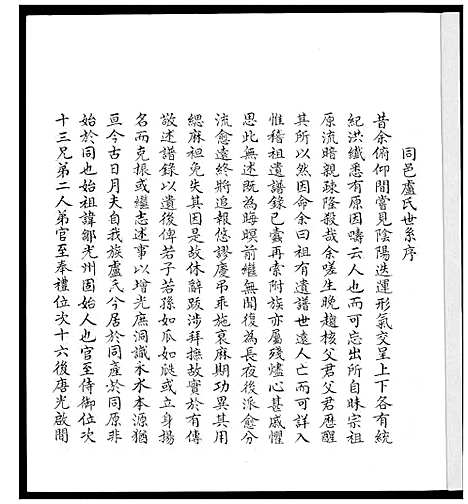 同邑盧氏世系序
昔余俯仰間嘗見陰陽迭運形氣交呈上下各有統
紀洪鐵悉有原因疇云人也而可忘出所自昧宗祖
原流暗親疎隆殺哉余嗟生晚趨核父君父君歷醒
其所以然因命余曰祖有遺譜世遠人亡而可詳入
惟稽祖遺譜錄已蠹再索附族亦屬殘燼心甚慼懼
思此無述既為晦暝前繼無聞復為長夜後派愈分
流愈遠終將追報悠謬慶弔乖施衰麻期功異其用
緦麻袒免失其因是故休辭跋涉拜撫故實於有傳
敬述譜錄以遺後俾若子若孫如瓜如瓞或立身揚
名而克振或繼志述事以增光庶洞識永水本源猶
亘今古日月夫自我族盧氏今居於同產於同原非
始於同也始祖諱鄒光州固始人也官至侍御位次
十三兄弟二人弟官至奉禮位次十六後唐光啟間